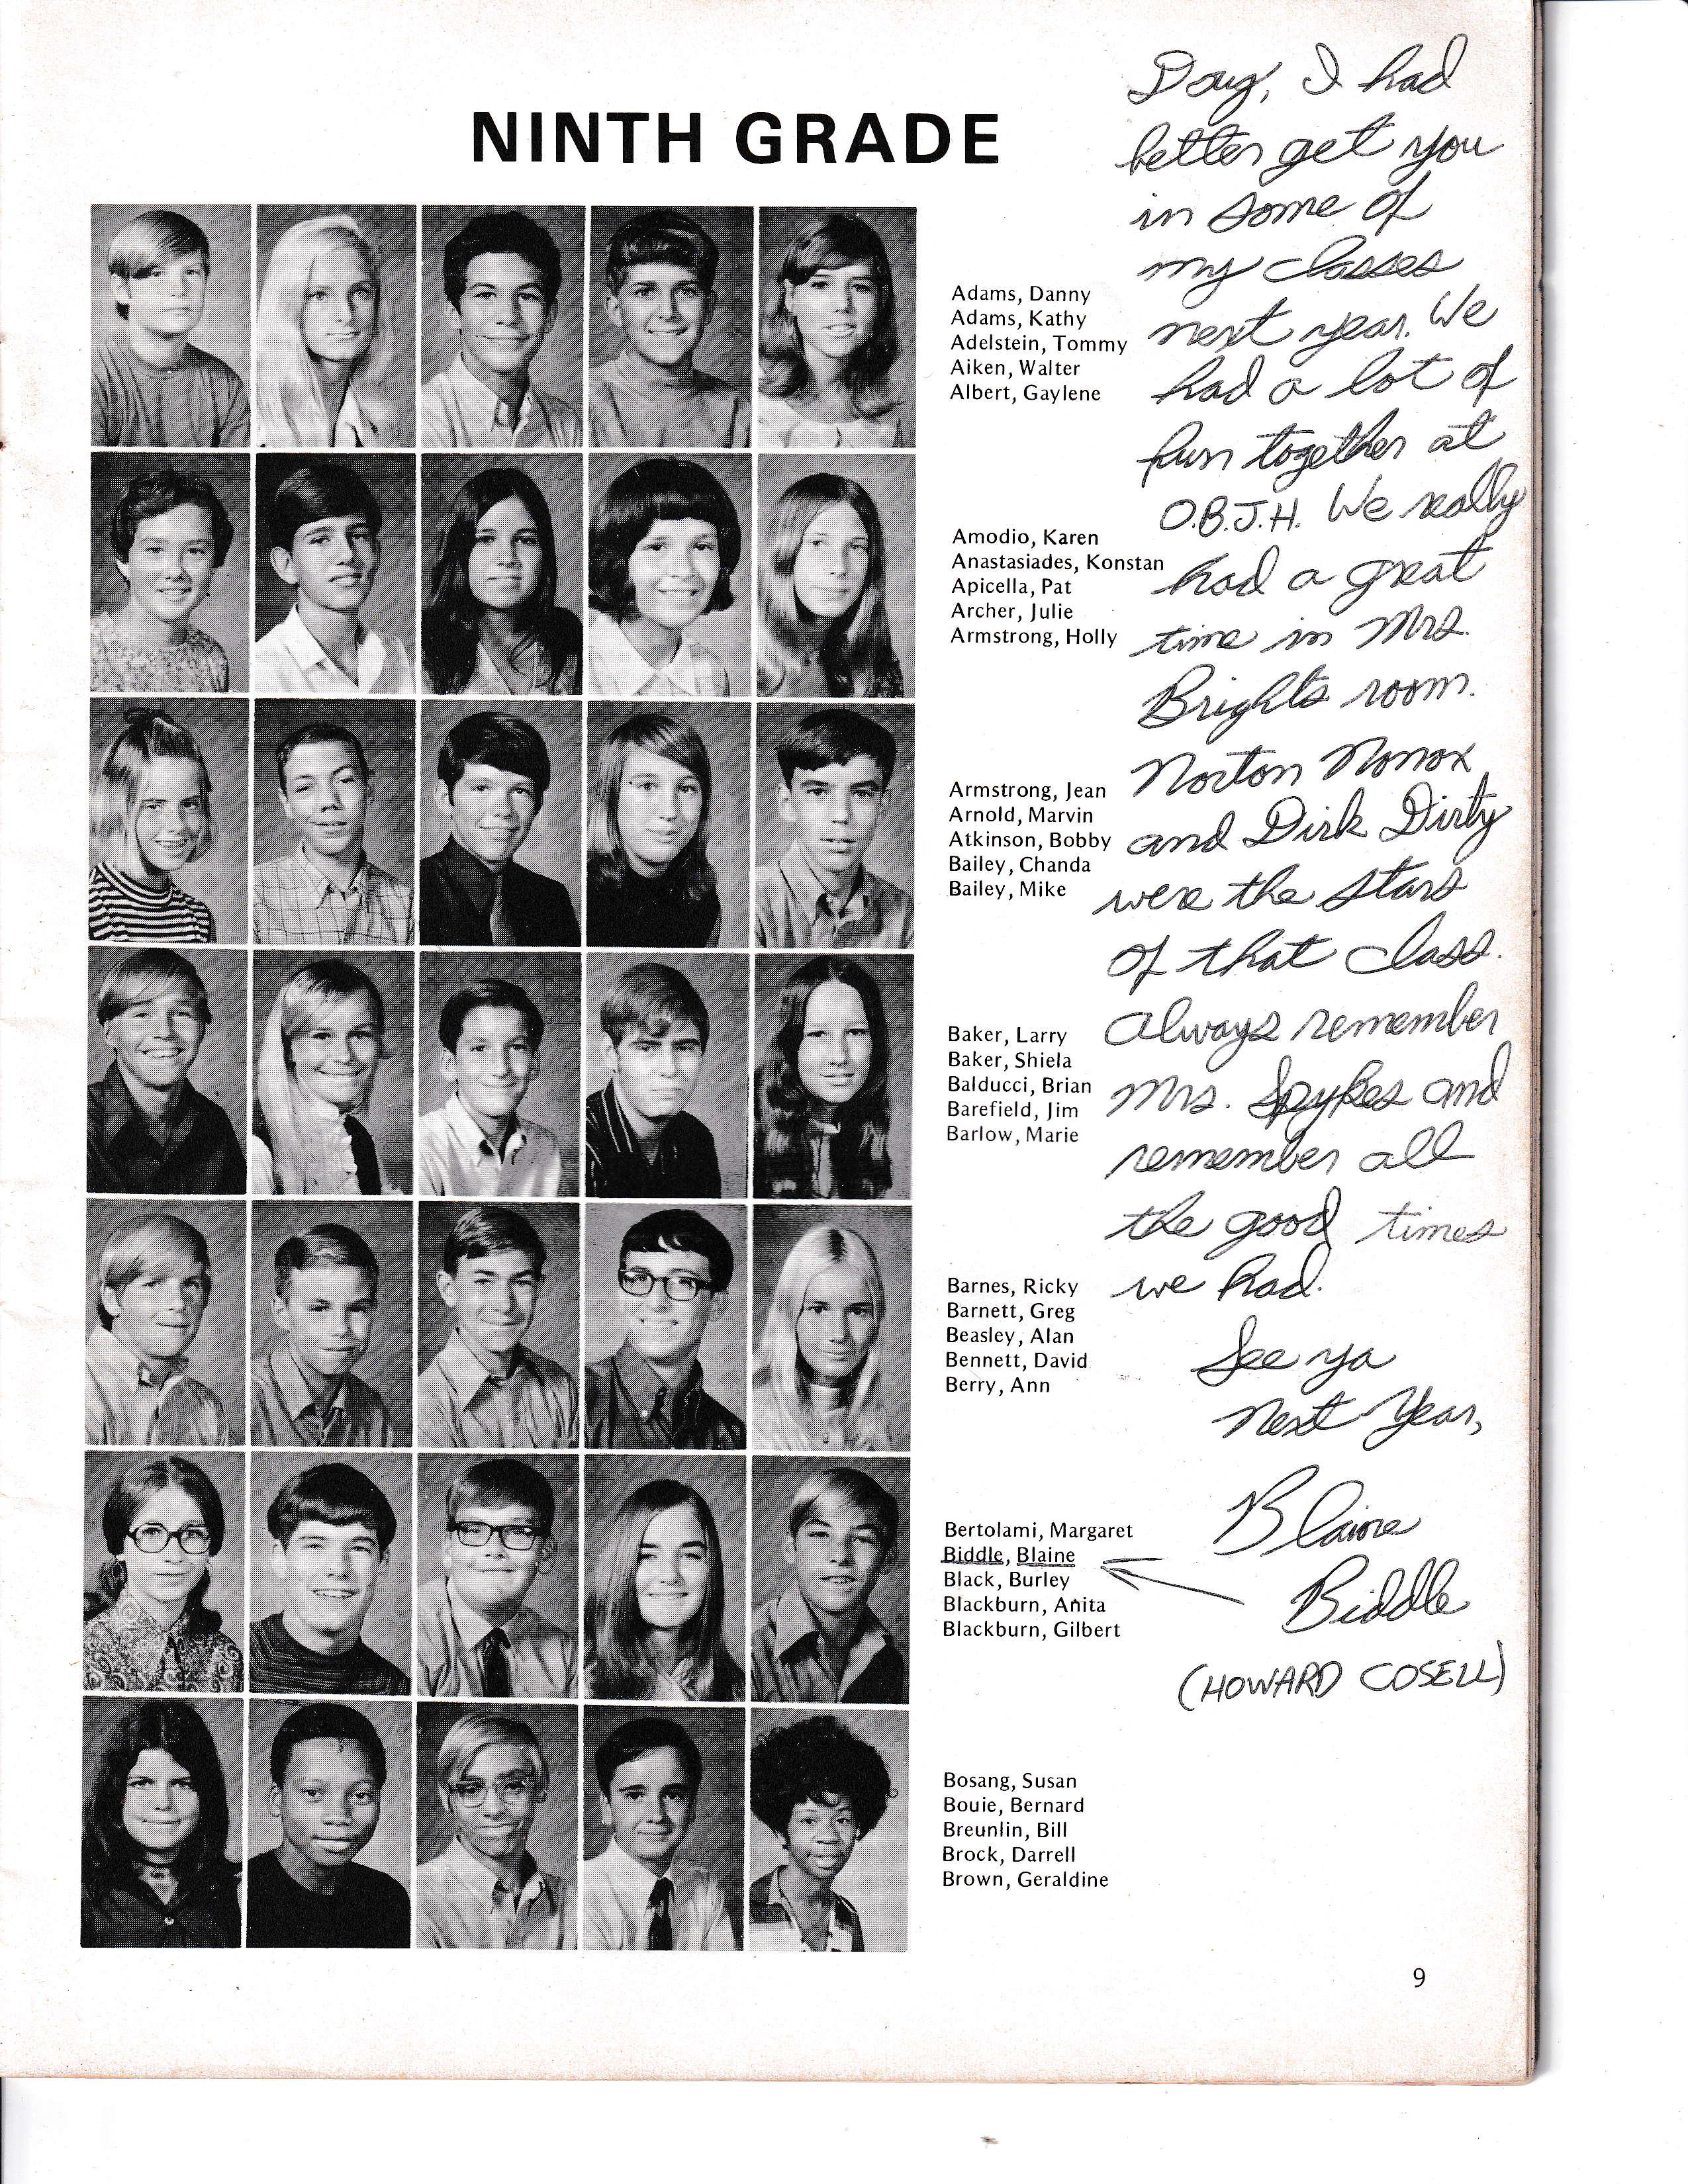 NINTH GRADE
Adams, Danny
Adams, Kathy
Adelstein, Tommy
Aiken, Walter
Albert, Gaylene
Amodio, Karen
Anastasiades, Konstan
Apicella, Pat
Archer, Julie
Armstrong, Holly
Armstrong, Jean
Arnold, Marvin
Atkinson, Bobby
Bailey, Chanda
Bailey, Mike
Baker, Larry
Baker, Shiela
Balducci, Brian
Barefield, Jim
Barlow, Marie
Barnes, Ricky
Barnett, Greg
Beasley, Alan
Bennett, David
Berry, Ann
Bertolami, Margaret
Biddle, Blaine
Black, Burley
Blackburn, Anita
Blackburn, Gilbert
Bosang, Susan
Bouie, Bernard
Breunlin, Bill
Brock, Darrell
Brown, Geraldine
Doug, I had
better get you
in some of
my classes
next year. We
had a lot of
fun together at
O.B.J.H. We really
had a great
time in Mrs.
Brights room.
Norton Nonox
and Dirk Dirty
were the stars
of that class.
Always remember
Mrs. Spykes and
remember all
the good times
we had.
See ya
Next Year,
Blaine
Biddle
(HOWARD COSELL)
9